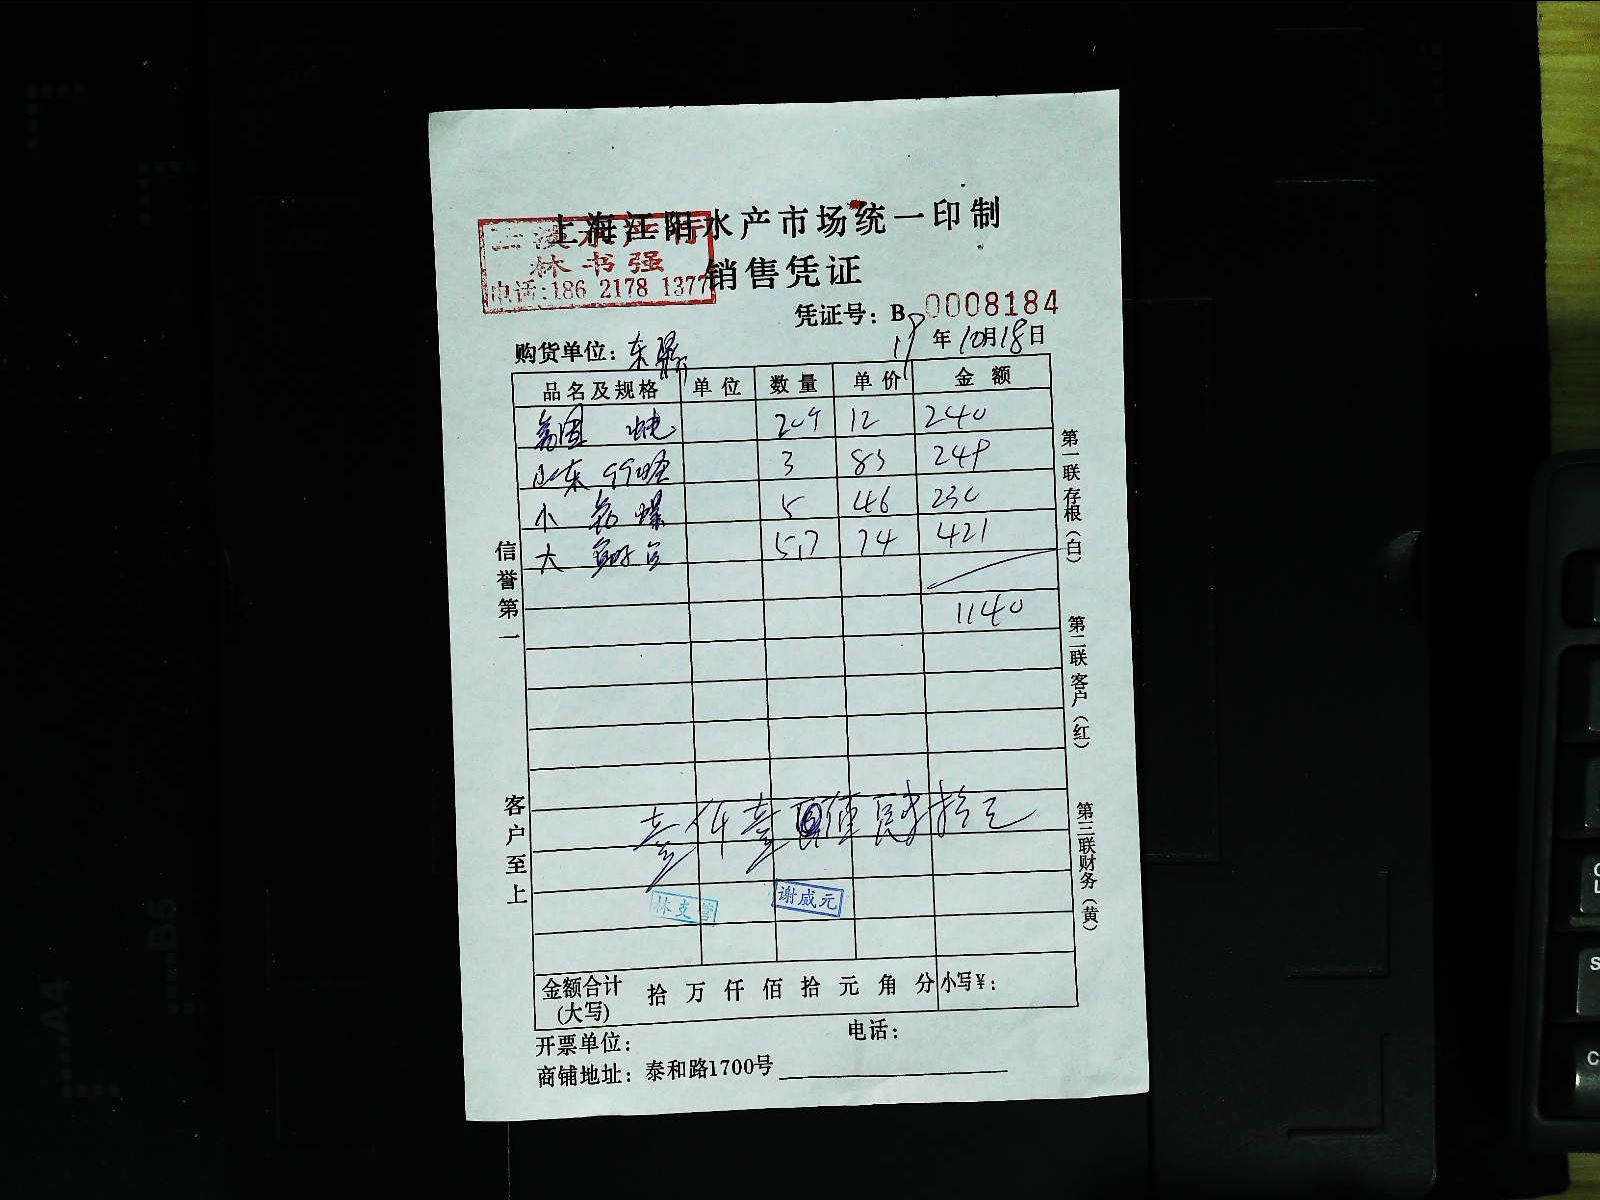 上海江阳水产市场统一印制
水产行
林书强
电话:186 2178 1377
销售凭证
凭证号: B 0008184
购货单位: 东
19年10月18日
品名及规格 单位 数量 单价 金额
12 240
山东 3 83 249
小 5 46 230
大 5.7 74 421
1140
林支营
谢威元
金额合计(大写) 拾 万 仟 佰 拾 元 角 分 小写¥:
开票单位: 电话:
商铺地址: 泰和路1700号
信誉第一
客户至上
第一联存根(白)
第二联客户(红)
第三联财务(黄)